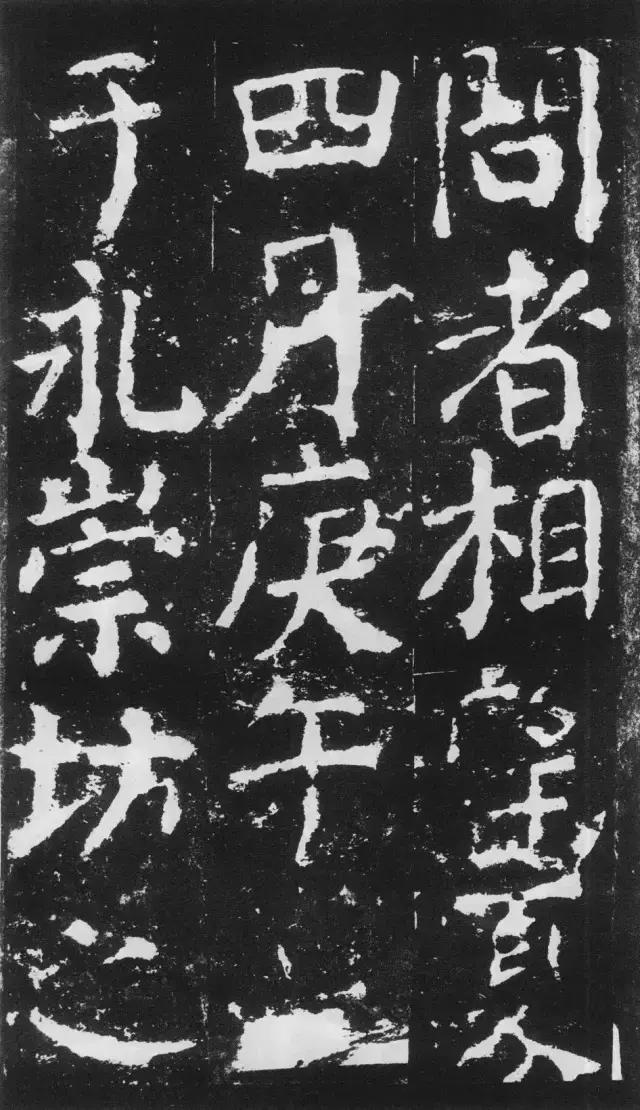 問者相望夏
四月庚午
于永崇坊之